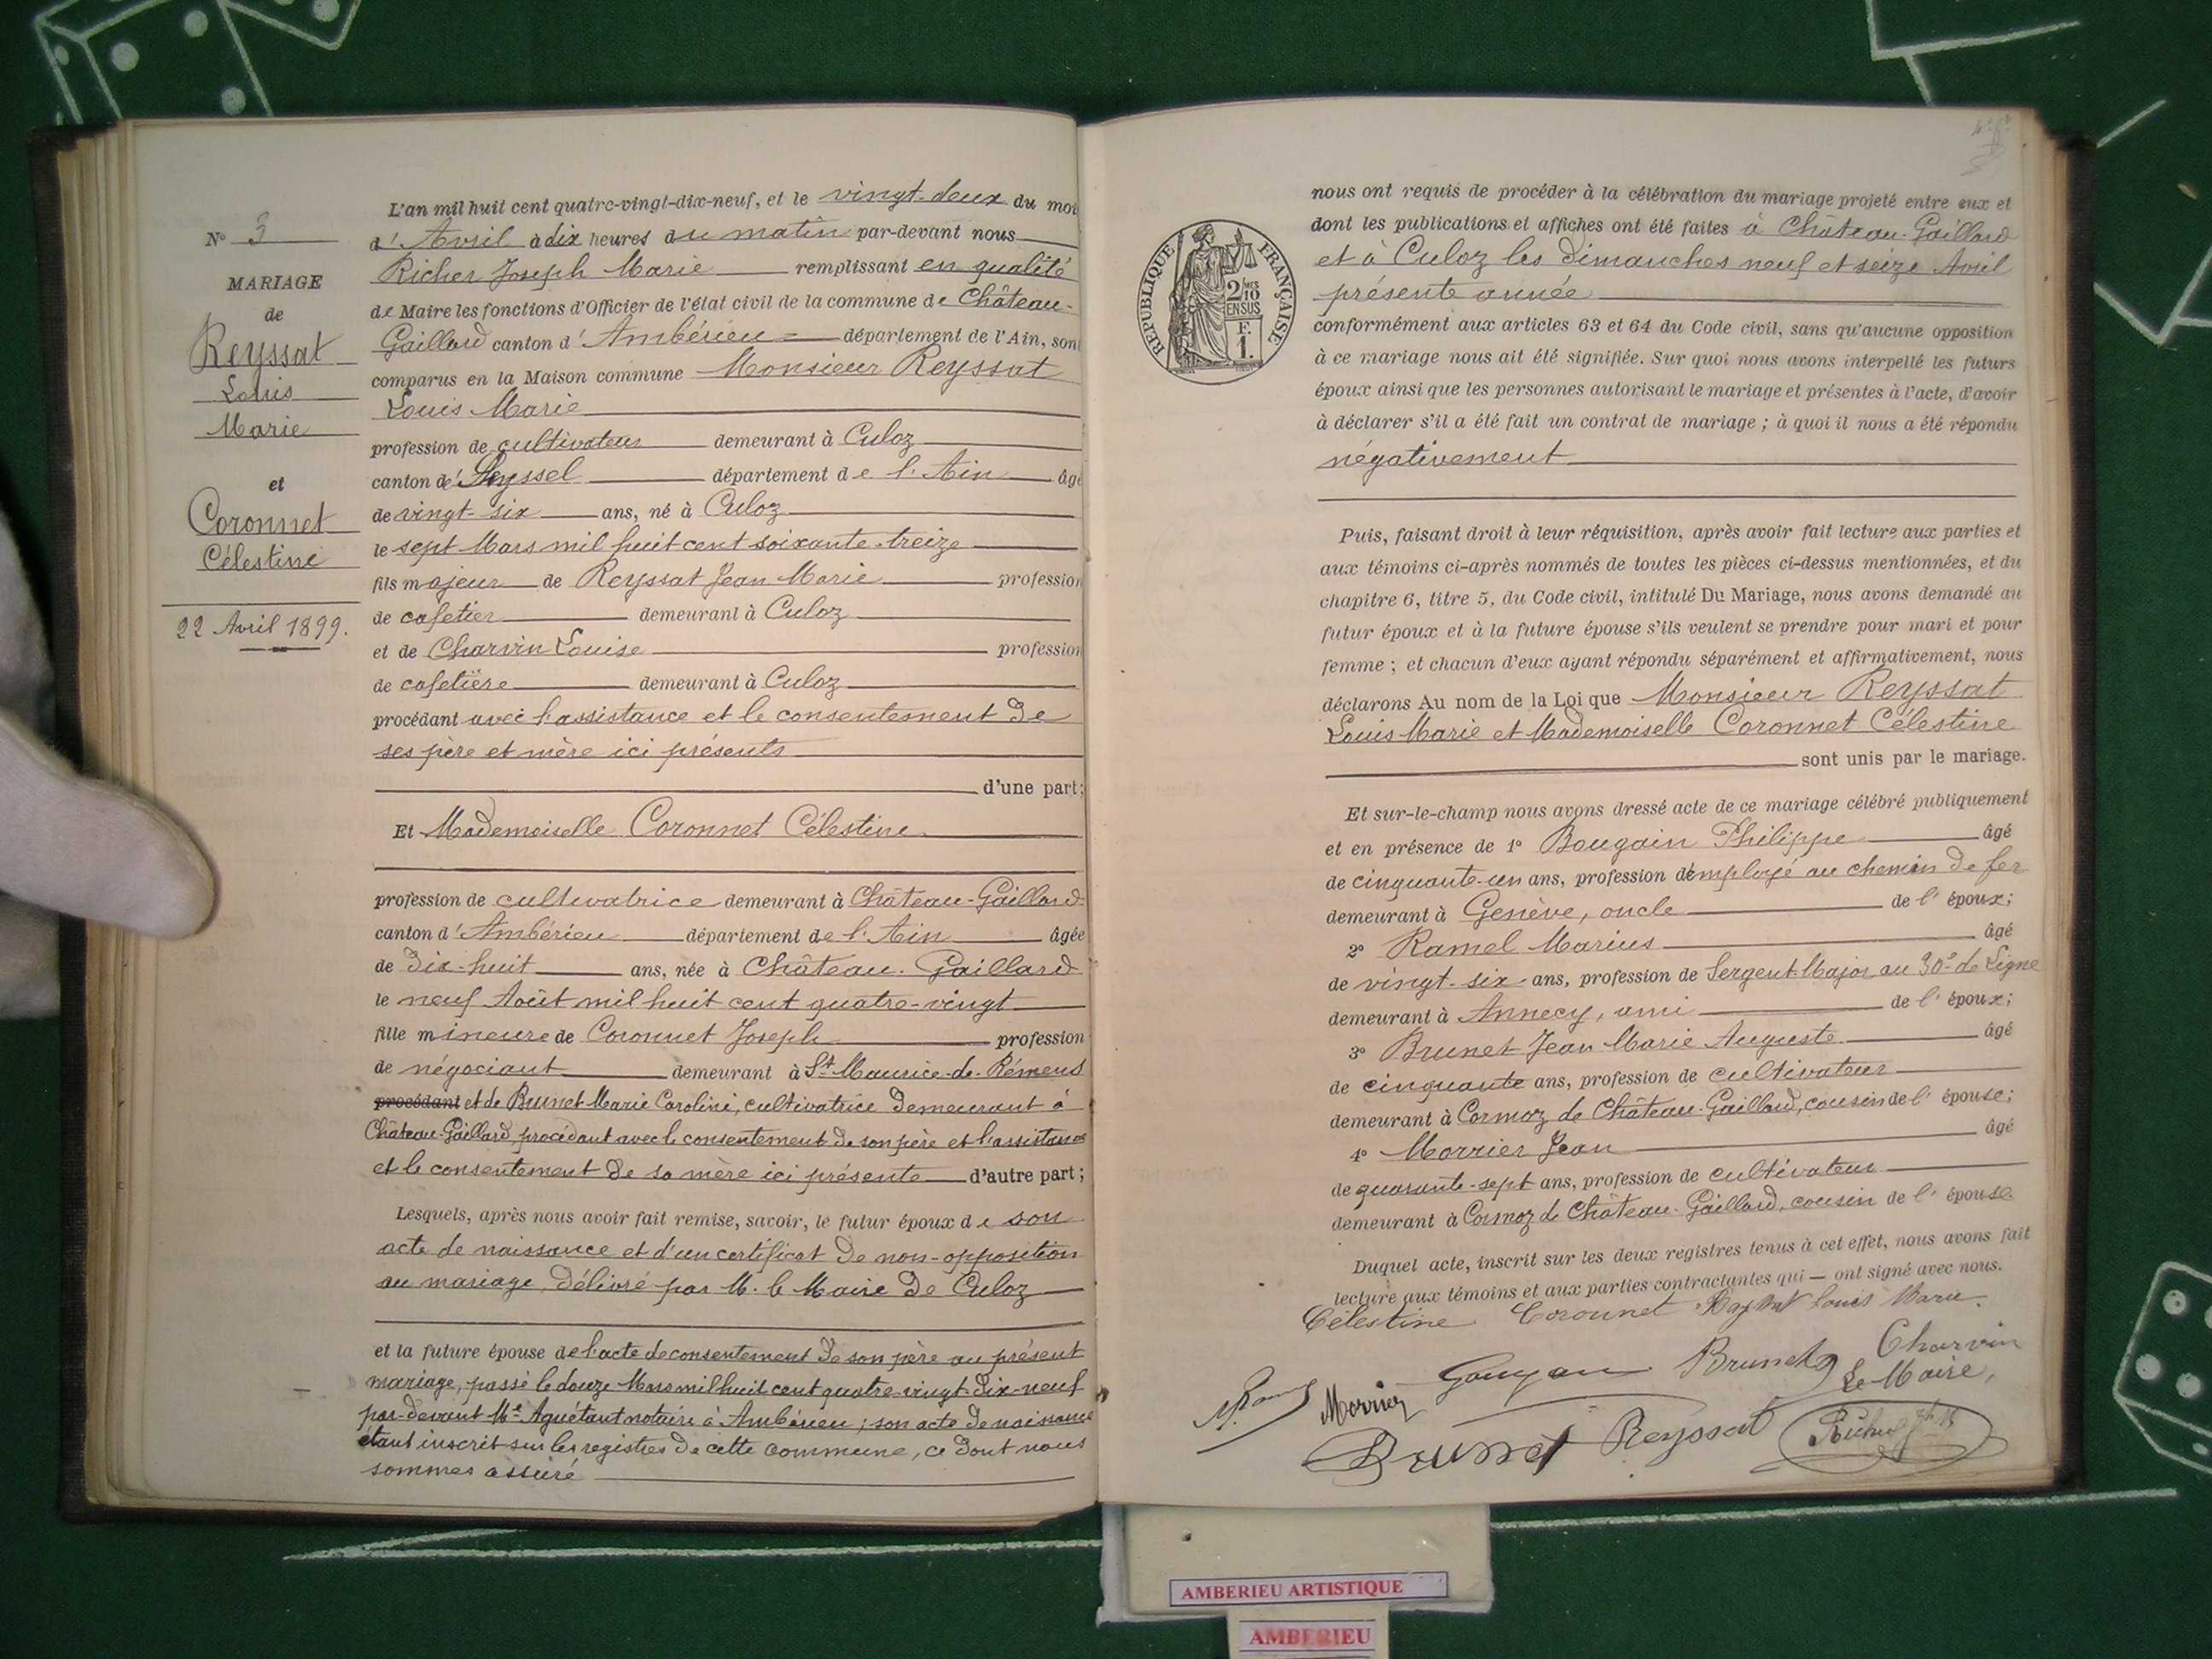 N° 3
MARIAGE
de
Reyssat
Louis
Marie
et
Coronnet
Célestine
22 Avril 1899.
L'an mil huit cent quatre-vingt-dix-neuf, et le vingt-deux du moi
d'Avril à dix heures du matin par-devant nous
Richer Joseph Marie remplissant en qualité
de Maire les fonctions d'Officier de l'état civil de la commune de Château-
Gaillard canton d'Ambérieu département de l'Ain, son
comparus en la Maison commune Monsieur Reyssat
Louis Marie
profession de cultivateur demeurant à Culoz
canton de Seyssel département de l'Ain âgé
de vingt-six ans, né à Culoz
le sept Mars mil huit cent soixante-treize
fils majeur de Reyssat Jean Marie profession
de cafetier demeurant à Culoz
et de Charvin Louise profession
de cafetière demeurant à Culoz
procédant avec l'assistance et le consentement de
ses père et mère ici présents
d'une part;
Et Mademoiselle Coronnet Célestine
profession de cultivatrice demeurant à Château-Gaillard
canton d'Ambérieu département de l'Ain âgée
de dix-huit ans, née à Château-Gaillard
le neuf Août mil huit cent quatre-vingt
fille mineure de Coronnet Joseph profession
de négociant demeurant à St Maurice-de-Rémens
procédant et de Brunet Marie Caroline, cultivatrice demeurant à
Château-Gaillard, procédant avec le consentement de son père et l'assistance
et le consentement de sa mère ici présente d'autre part;
Lesquels, après nous avoir fait remise, savoir, le futur époux de son
acte de naissance et d'un certificat de non-opposition
au mariage, délivré par M. le Maire de Culoz
et la future épouse de l'acte de consentement de son père au présent
mariage, passé le douze Mars mil huit cent quatre-vingt-dix-neuf
par-devant Me Aguétant notaire à Ambérieu; son acte de naissance
étant inscrit sur les registres de cette commune, ce dont nous
sommes assuré
RÉPUBLIQUE FRANÇAISE
2/10MES
EN SUS
F.
1.
nous ont requis de procéder à la célébration du mariage projeté entre eux et
dont les publications et affiches ont été faites à Château-Gaillard
et à Culoz les dimanches neuf et seize Avril
présente année
conformément aux articles 63 et 64 du Code civil, sans qu'aucune opposition
à ce mariage nous ait été signifiée. Sur quoi nous avons interpellé les futurs
époux ainsi que les personnes autorisant le mariage et présentes à l'acte, d'avoir
à déclarer s'il a été fait un contrat de mariage; à quoi il nous a été répondu
négativement
Puis, faisant droit à leur réquisition, après avoir fait lecture aux parties et
aux témoins ci-après nommés de toutes les pièces ci-dessus mentionnées, et du
chapitre 6, titre 5, du Code civil, intitulé Du Mariage, nous avons demandé au
futur époux et à la future épouse s'ils veulent se prendre pour mari et pour
femme; et chacun d'eux ayant répondu séparément et affirmativement, nous
déclarons Au nom de la Loi que Monsieur Reyssat
Louis Marie et Mademoiselle Coronnet Célestine
sont unis par le mariage.
Et sur-le-champ nous avons dressé acte de ce mariage célébré publiquement
et en présence de 1° Bougain Philippe âgé
de cinquante-un ans, profession d'employé au chemin de fer
demeurant à Genève, oncle de l'époux;
2° Ramel Marius âgé
de vingt-six ans, profession de Sergent Major au 30e de Ligne
demeurant à Annecy, ami de l'époux;
3° Brunet Jean Marie Auguste âgé
de cinquante ans, profession de cultivateur
demeurant à Cormoz de Château-Gaillard, cousin de l'épouse;
4° Morrier Jean âgé
de quarante-sept ans, profession de cultivateur
demeurant à Cormoz de Château-Gaillard, cousin de l'épouse
Duquel acte, inscrit sur les deux registres tenus à cet effet, nous avons fait
lecture aux témoins et aux parties contractantes qui — ont signé avec nous.
Célestine Coronnet Reyssat Louis Marie.
Charvin
Brunet
Le Maire,
Morrier
Brunet Reyssat
AMBERIEU ARTISTIQUE
AMBERIEU